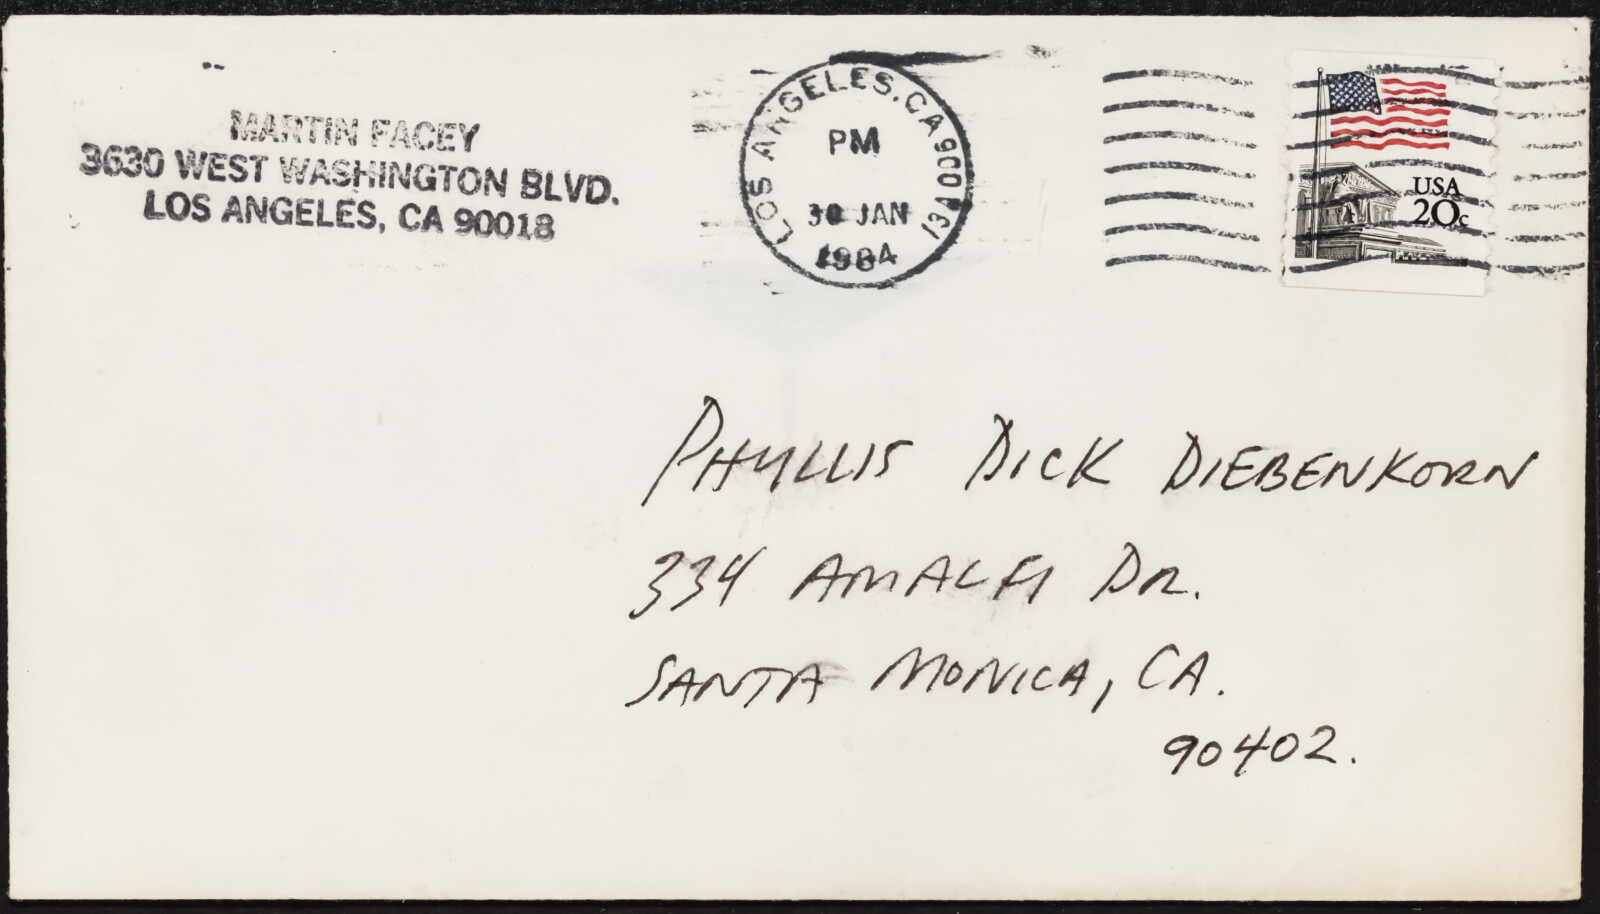 MARTIN FACEY
3630 WEST WASHINGTON BLVD.
LOS ANGELES, CA 90018
LOS ANGELES, CA 900 (3)
PM
30 JAN
1984
USA
20c
PHYLLIS DICK DIEBENKORN
334 AMALFI DR.
SANTA MONICA, CA.
90402.